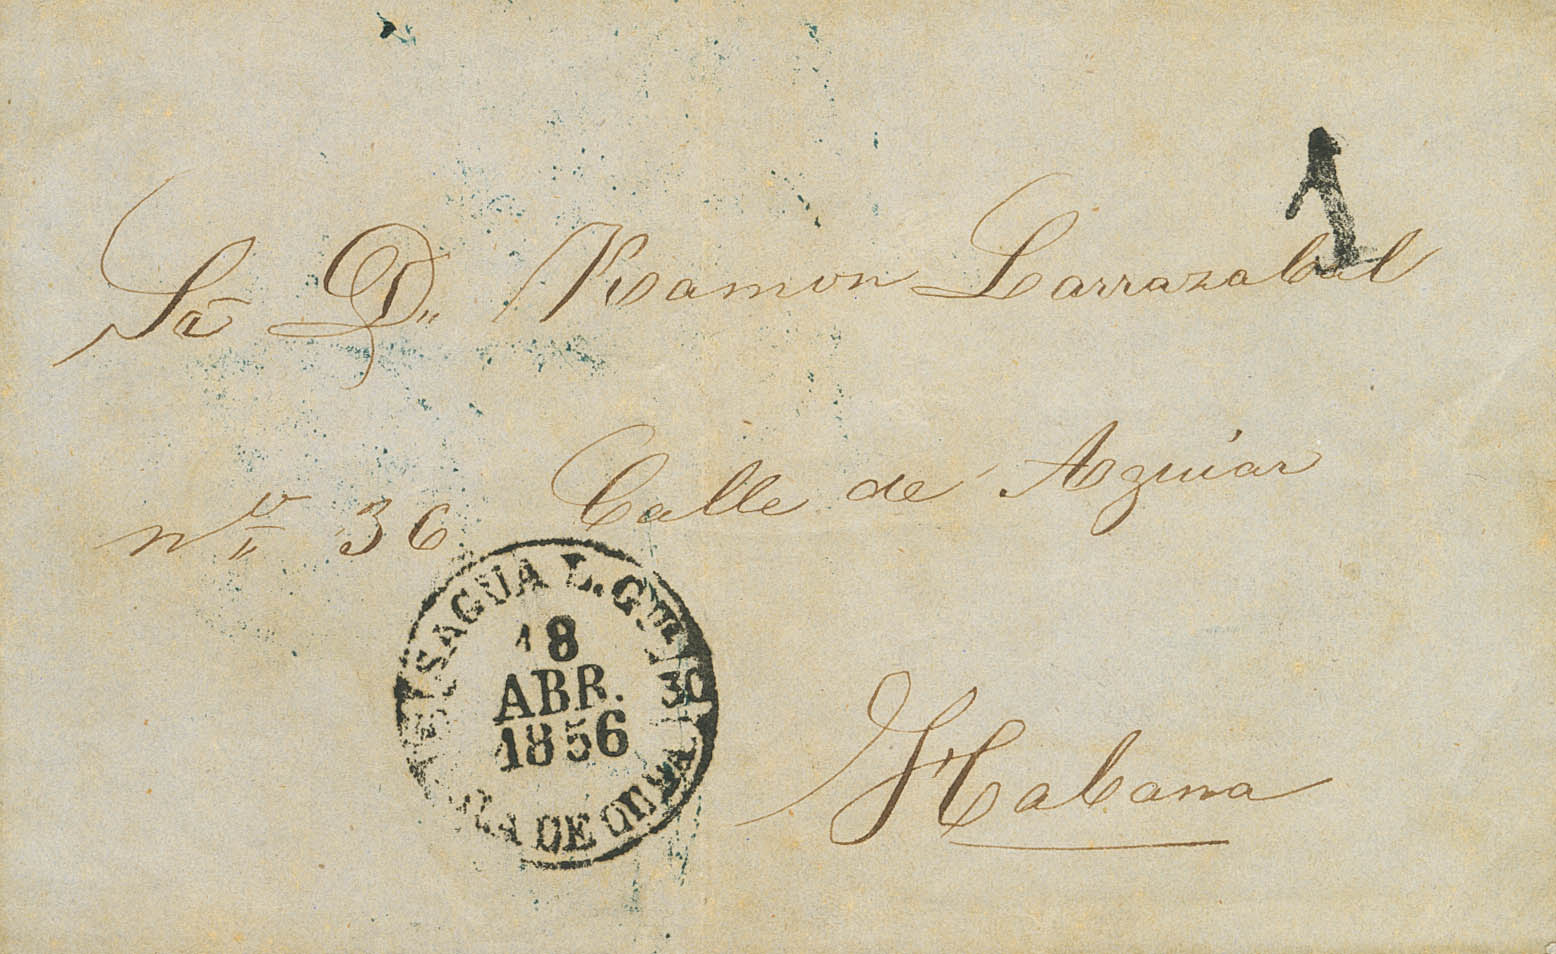 1
Sr. Dn. Ramon Larrazabal
no. 36 Calle de Aguiar
SAGUA L. G
30
18
ABR.
1856
DE CUBA
Habana